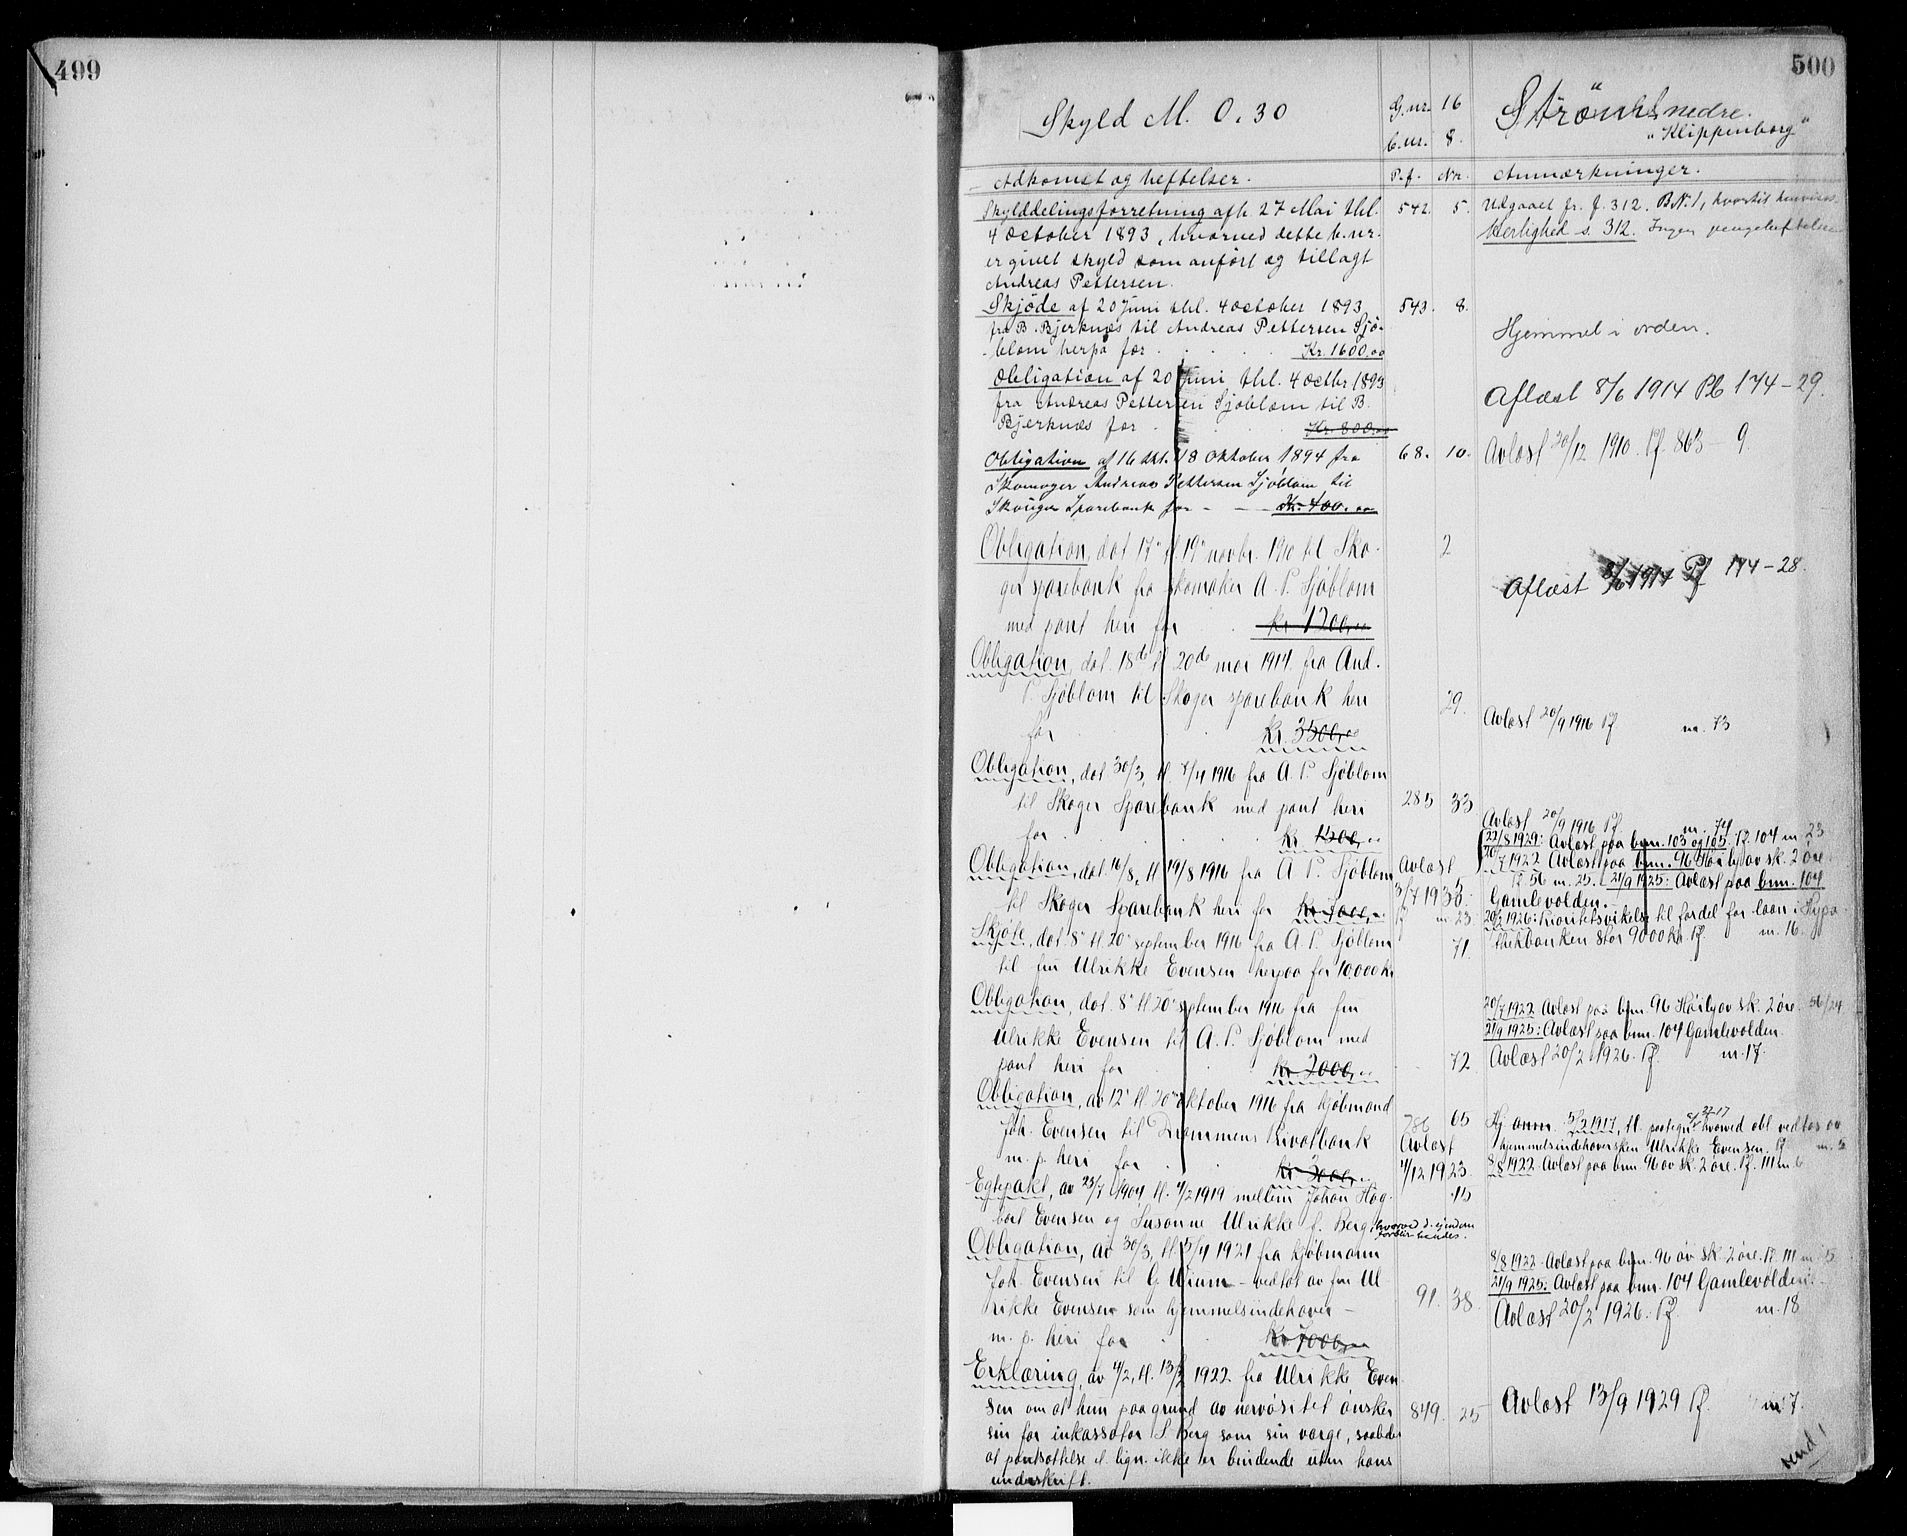 499
500
Skyld M. 0.30
G.nr. 16
b.nr. 8.
Strömhs nedre.
"Klippenborg"
Adkomst og heftelser.
P.f. Nr.
Anmærkninger.
Skylddelingsforretning afh. 27 Mai thl. 542. 5.
4 October 1893, hvorved dette b.nr.
er givet skyld som anført og tillagt
Andreas Pettersen.
Udgaaet fr. f. 312. B.N. 1, hvortil henvises
Herlighed s. 312. Ingen pengeheftelser
Skjöde af 20 Juni thl. 4 october 1893 543. 8.
fra B. Bjerknæs til Andreas Pettersen Sjö-
blom herpå for Kr. 1600,00
Hjemmel i orden.
Obligation af 20 Juni thl. 4 octbr 1893
fra Andreas Pettersen Sjöblom til B.
Bjerknæs for Kr. 800,00
Aflæst 8/6 1914 Pb 174-29.
Obligation af 16 thl. 18 Oktober 1894 fra 68. 10.
Skomager Andreas Pettersen Sjöblom til
Skouger Sparebank for - - Kr. 400.00
Avlæst 20/12 1910 Pf. 863 - 9
Obligation, dat 17' tl 19' novbr. 1910 til Sko- 2
ger sparebank fra skomaker A. P. Sjöblom
med pant heri for kr 1200,00
Aflæst 8/6 1914 Pf 174-28.
Obligation, dat. 18de tl 20de mai 1914 fra And.
P. Sjöblom til Skoger sparebank heri 29.
for Kr. 3500,00
Avlæst 20/9 1916 Pf m. 73
Obligation, dat 30/3, tl. 7/4 1916 fra A. P. Sjöblom
til Skoger Sparebank med pant heri 285 33
for kr 1500,00
Avlæst 20/9 1916 Pf. m. 74
Obligation, dat 16/8, tl 19/8 1916 fra A. P. Sjöblom
til Skoger Sparebank heri for
Avlæst
3/7 1935.
Pf m. 23
22/8 1929: Avlæst paa bnm. 103 og 105. Pf. 104 m 23
20/7 1922 Avlæst paa bnm. 96 Höiby av sk. 2 øre
Pf 56 m. 25. 21/9 1925: Avlæst paa bnm. 104
Gamlevolden.
20/2 1926: Prioritetsvikelse til fordel for laan i Hypo-
thekbanken stor 9000 kr. Pf. m. 16.
Skjöte, dat. 8' tl. 20' september 1916 fra A. P. Sjöblom 71.
til fru Ulrikke Evensen herpaa for 10.000 kr
Obligation, dat. 8' tl 20' september 1916 fra fru
Ulrikke Evensen til A. P. Sjöblom med
pant heri for kr 2000,00 72
20/7 1922 Avlæst paa bnm. 96 Höiby av sk. 2 øre. 56/24
21/9 1925: Avlæst paa bnm. 104 Gamlevolden
Avlæst 20/2 1926. Pf. m. 17.
Obligation, av 12' tl 20' oktober 1916 fra kjöbmand
Joh. Evensen til Drammens Privatbank 786 65
m. p. heri for kr 3000,00
Avlæst
4/12 1923.
Hj. anm. 5/2 1917, tl. paategn. hvorved obl vedtas av
hjemmelsindehaversken Ulrikke Evensen. Pf. m. 3
8/8 1922 Avlæst paa bnm 96 av sk. 2 øre. Pf. 111 m 6
Egtepakt, av 25/7 1904 tl. 4/2 1919 mellem Johan Hag- 15
bart Evensen og Susanne Ulrikke f. Berg, hvorved d. eiendom
forblir hendes.
Obligation, av 30/3, tl. 5/4 1921 fra kjöbmann
Joh. Evensen til G. Wium - vedtat av fru Ul-
rikke Evensen som hjemmelsindehaver - 91. 38.
m. p. heri for kr 7000,00
8/8 1922 Avlæst paa bnm. 96 av sk. 2 øre. Pf. 111 m 5
21/9 1925: Avlæst paa bnm. 104 Gamlevolden
Avlæst 20/2 1926. Pf. m. 18
Erklæring, av 4/2, tl. 13/2 1922 fra Ulrikke Even-
sen om at hun paa grund av nervösitet önsker 849. 25
sin far inkassofor. S Berg som sin værge, saaledes
at pantsættelse el. lign. ikke er bindende uten hans
underskrift.
Avlæst 13/9 1929 Pf. m 7.
vend!